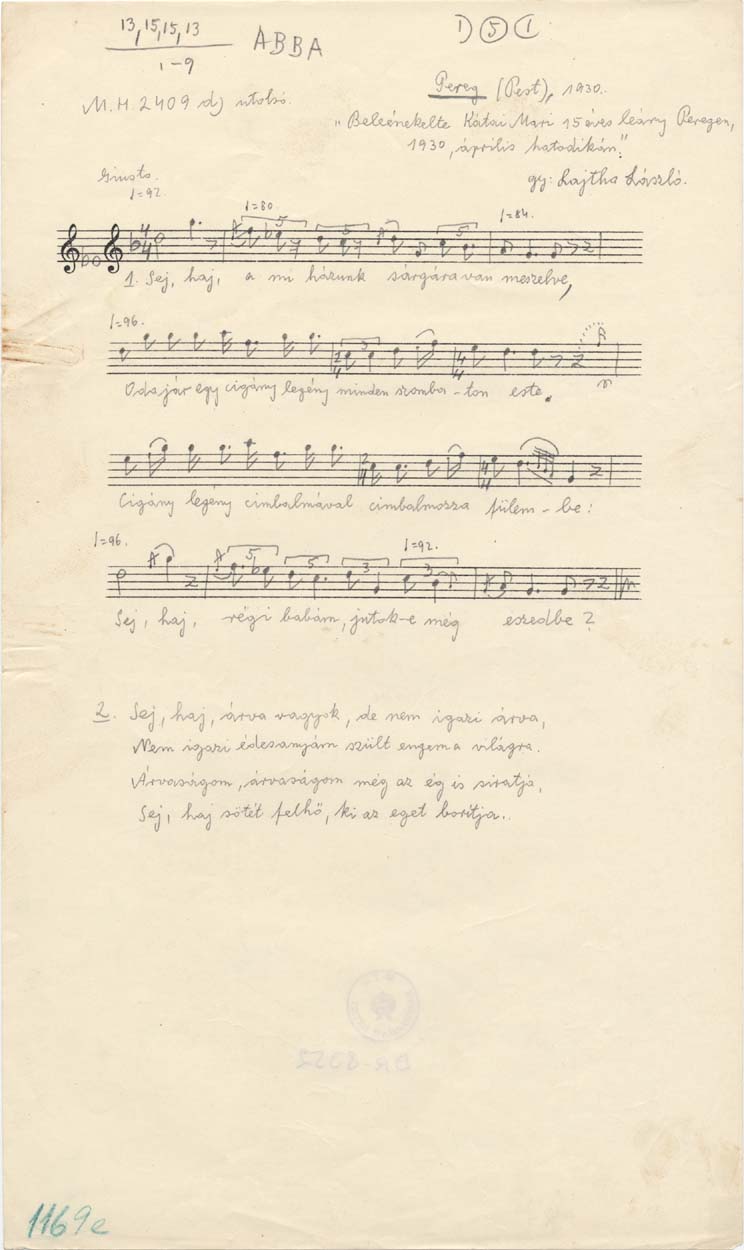 13, 15, 15, 13
1-9
ABBA
1) ⑤ (1
M.H. 2409 d) utolsó.
Pereg (Pest), 1930.
"Beleénekelte Kátai Mari 15 éves leány Peregen,
1930, április hatodikán."
gy: Lajtha László.
Giusto.
♩=92. ♩=80. ♩=84.
5 5 5
4/4
1. Sej, haj, a mi házunk sárgára van meszelve,
♩=96.
5
Oda jár egy cigány legény minden szomba-ton este.
Cigány legény cimbalmával cimbalmozza fülem-be:
♩=96. ♩=92.
5 5 3 3
Sej, haj, régi babám, jutok-e még eszedbe?
2. Sej, haj, árva vagyok, de nem igazi árva,
Nem igazi édesamjám szült engem a világra.
Árvaságom, árvaságom még az ég is siratja,
Sej, haj sötét felhő, ki az eget borítja.
1169e